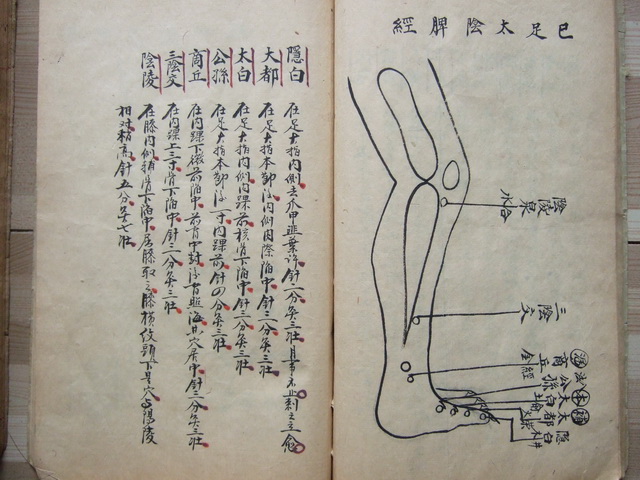 巳足太陰脾經
陰陵泉
水合
三陰交
商丘
金經
公孫
太白
大都
隱白
木井
隱白 在足大指內側去爪甲韭葉許針一分灸三壯月事不止刺之立愈
大都 在足大指本節後內側內際陷中針三分灸三壯
太白 在足大指內側內踝前核骨下陷中針三分灸三壯
公孫 在足大指本節後一寸內踝前針四分灸三壯
商丘 在內踝下微前陷中前有中封後有照海其穴居中針三分灸三壯
三陰交 在內踝上三寸骨下陷中針三分灸三壯
陰陵 在膝內側輔骨下陷中屈膝取之膝橫紋頭下是穴与陽陵
相對稍高針五分灸七壯